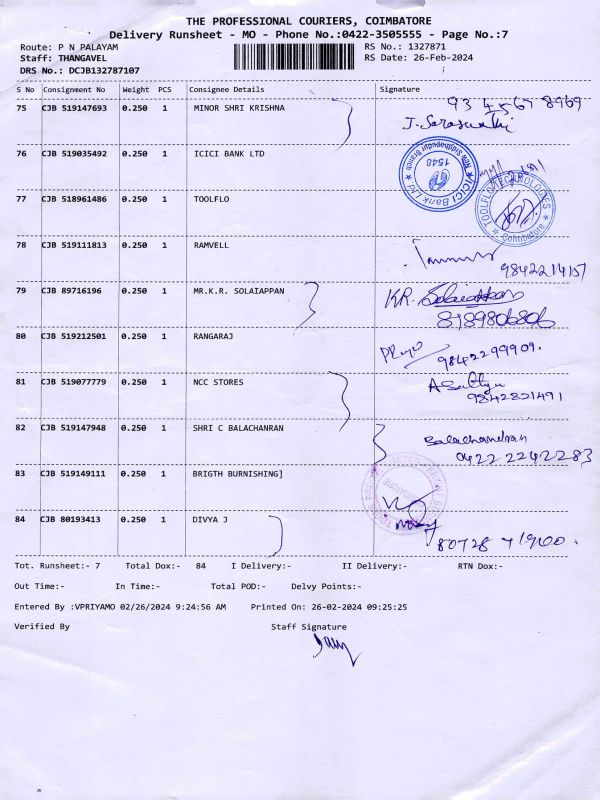 THE PROFESSIONAL COURIERS, COIMBATORE
Delivery Runsheet - MO - Phone No.:0422-3505555 - Page No.:7
Route: P N PALAYAM RS No.: 1327871
Staff: THANGAVEL RS Date: 26-Feb-2024
DRS No.: DCJB132787107
S No Consignment No Weight PCS Consignee Details Signature
75 CJB 519147693 0.250 1 MINOR SHRI KRISHNA
J. Saraswathi
76 CJB 519035492 0.250 1 ICICI BANK LTD
ICICI Bank Ltd 1548
77 CJB 518961486 0.250 1 TOOLFLO
TOOLFLO TECHNOLOGIES Coimbatore
78 CJB 519111813 0.250 1 RAMVELL
79 CJB 89716196 0.250 1 MR.K.R. SOLAIAPPAN KR. Solaiappan
80 CJB 519212501 0.250 1 RANGARAJ
9842299909.
81 CJB 519077779 0.250 1 NCC STORES
9842821491
82 CJB 519147948 0.250 1 SHRI C BALACHANRAN Balachandran
0422 2242283
83 CJB 519149111 0.250 1 BRIGTH BURNISHING]
84 CJB 80193413 0.250 1 DIVYA J
80728 71960.
Tot. Runsheet:- 7 Total Dox:- 84 I Delivery:- II Delivery:- RTN Dox:-
Out Time:- In Time:- Total POD:- Delvy Points:-
Entered By :VPRIYAMO 02/26/2024 9:24:56 AM Printed On: 26-02-2024 09:25:25
Verified By Staff Signature